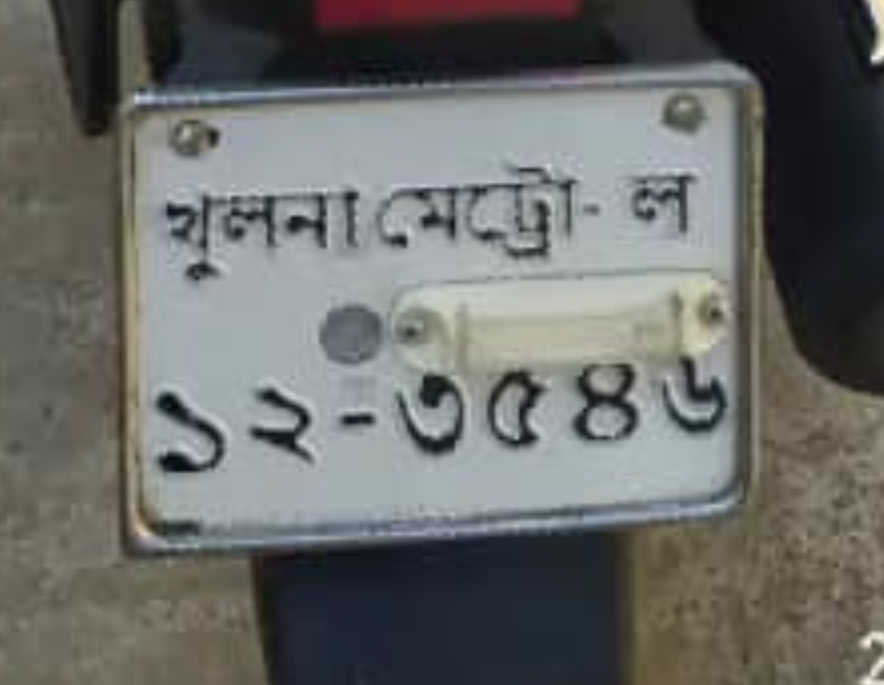 খুলনা মেট্রো- ল
১২-৩৫৪৬